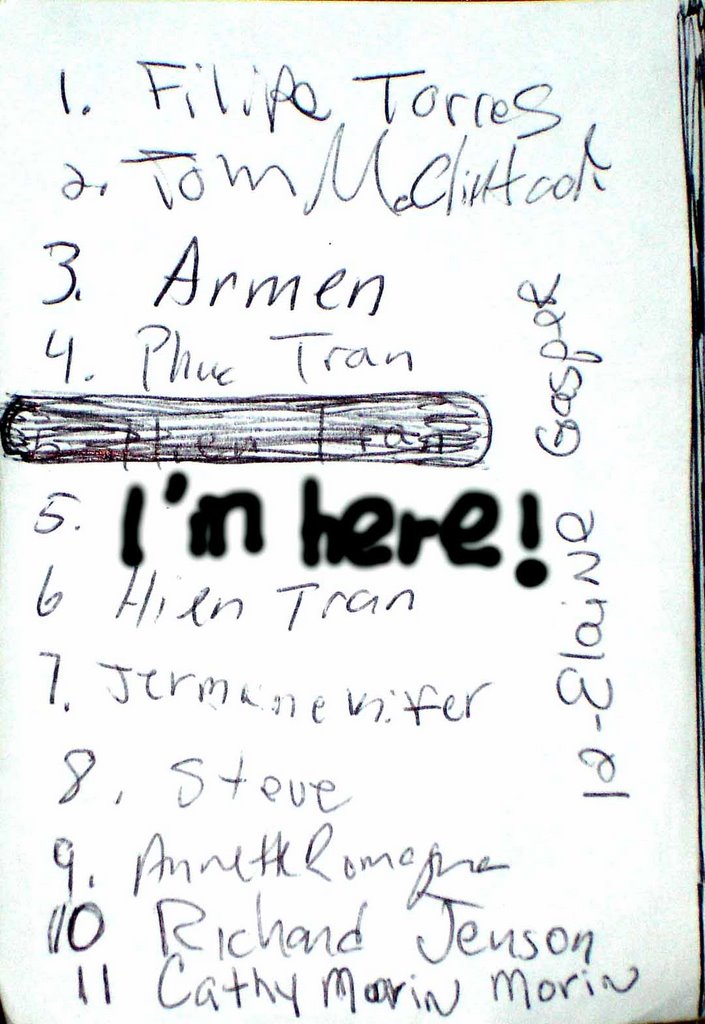 1. Filipe Torres
2. Tom McClintock
3. Armen
4. Phuc Tran
5. Hien Tran
5. I'm here!
6 Hien Tran
7.
8. Steve
9. Annette
10 Richard Jenson
11 Cathy Morin Morin
12-Elaine Gasper